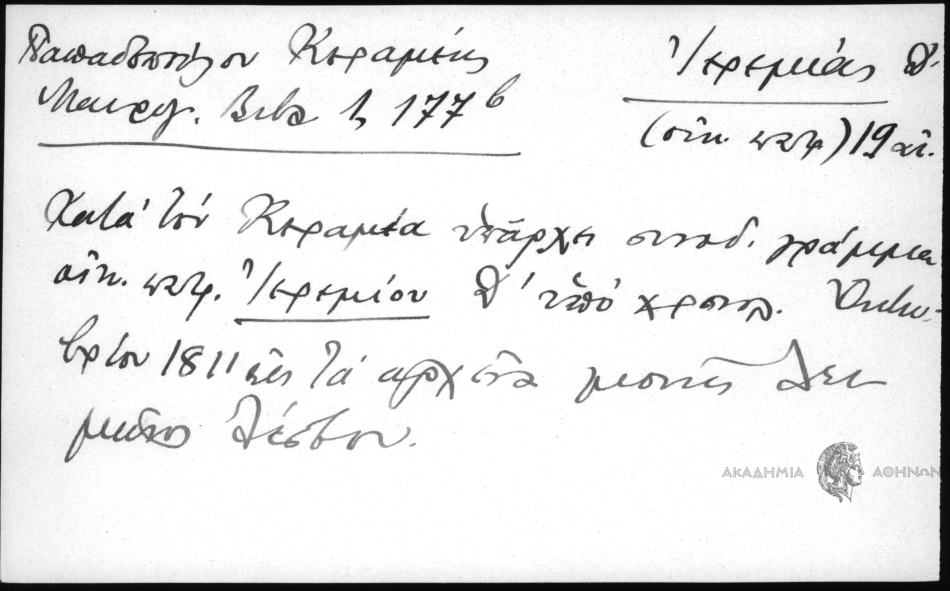 Παπαδοπούλου Κεραμέως
Μαυρογ. Βιβλ 1, 177β
Ἱερεμίας Δ'
(οἰκ. πατρ) 19 αἰ.
Κατὰ τὸν Κεραμέα ὑπάρχει συνοδ. γράμμα
οἰκ. πατρ. Ἱερεμίου Δ' ὑπὸ χρονολ. Ὀκτω-
βρίου 1811 εἰς τὰ ἀρχεῖα μονῆς Λει
μῶνος Λέσβου.
ΑΚΑΔΗΜΙΑ ΑΘΗΝΩΝ